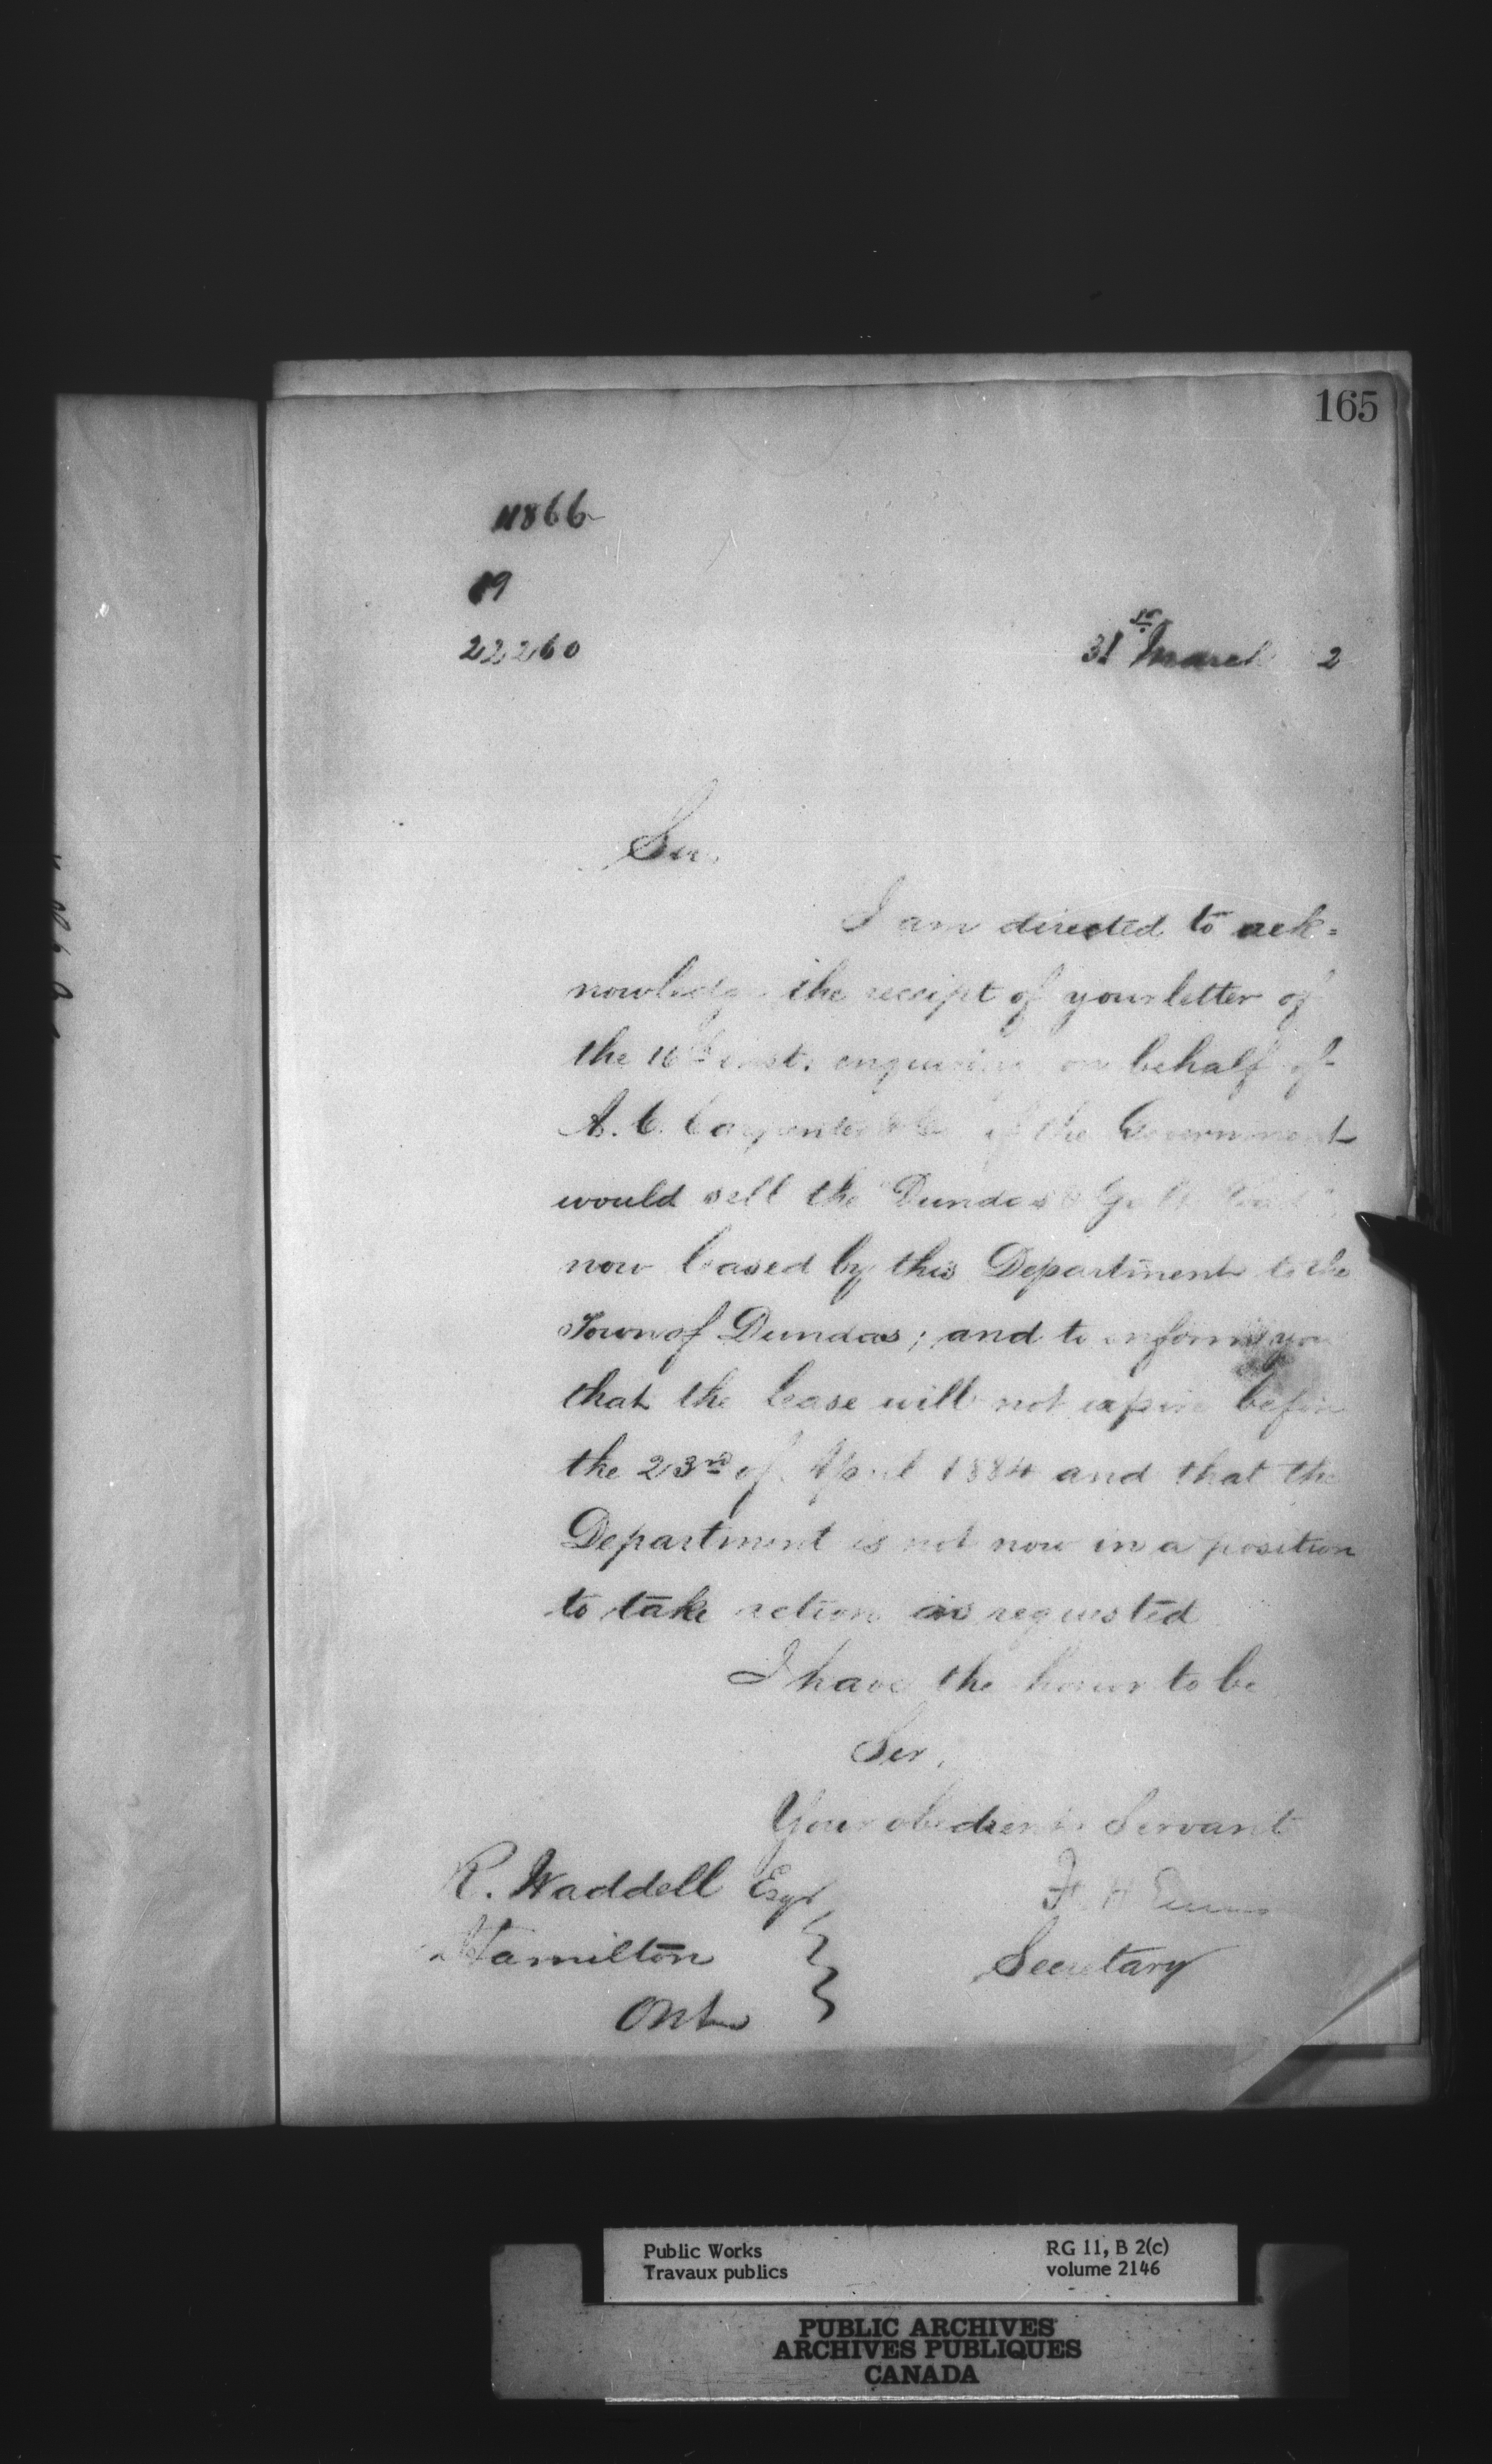 165
11866
89
22260
31st March 2
Sir,
I am directed to ack=
nowledge the receipt of your letter of
the 16th inst. enquiring on behalf of
A. C. Carpenter & Co if the Government
would sell the Dundas &
now leased by this Department to the
Town of Dundas; and to inform you
that the lease will not expire before
the 23rd of April 1884 and that the
Department is not now in a position
to take action as requested
I have the honor to be
Sir,
Your obedient Servant
R. Waddell Esqr,
F. H. Ennis
Hamilton
Secretary
Ont
Public Works
Travaux publics
RG 11, B 2(c)
volume 2146
PUBLIC ARCHIVES
ARCHIVES PUBLIQUES
CANADA